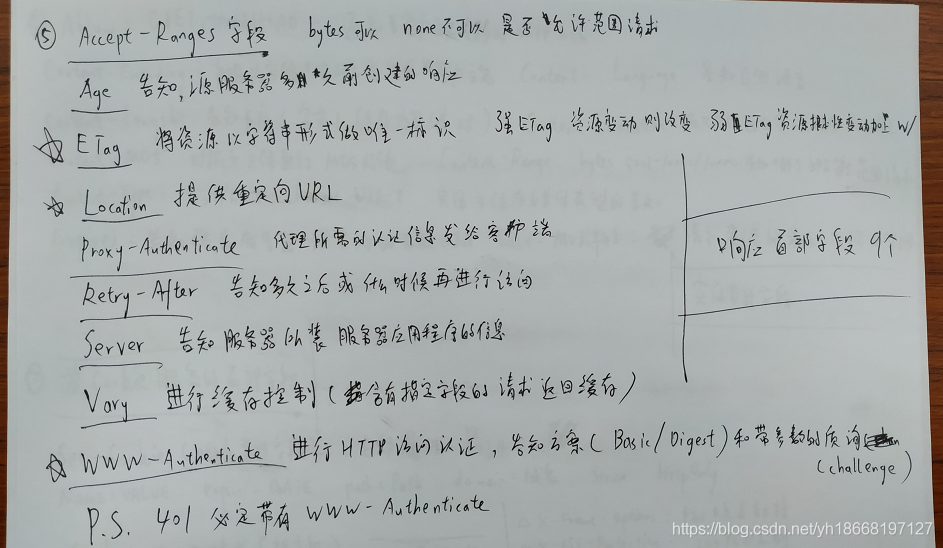 ⑤ Accept-Ranges 字段 bytes可以 none不可以 是否允许范围请求
Age 告知,源服务器多久前创建的响应
☆ ETag 将资源以字符串形式做唯一标识 强ETag 资源变动则改变 弱ETag资源 变动加 W/
☆ Location 提供重定向URL
Proxy-Authenticate 代理所需的认证信息发给客户端
Retry-After 告知多久之后或什么时候再进行访问
响应首部字段 9个
Server 告知服务器所装服务器应用程序的信息
Vary 进行缓存控制(含有指定字段的请求返回缓存)
☆ WWW-Authenticate 进行HTTP访问认证,告知方案(Basic/Digest)和带参数的质询
(challenge)
P.S. 401 必定带有 WWW-Authenticate
https://blog.csdn.net/yh18668197127